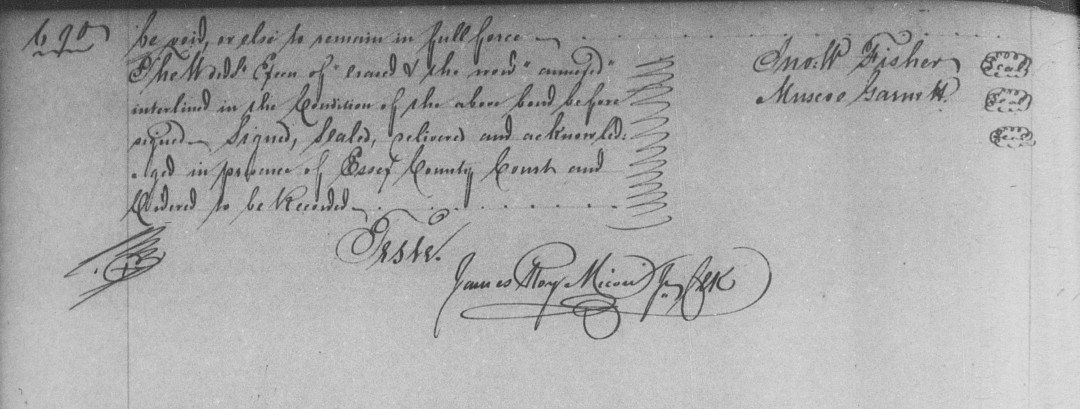 be void, or else to remain in full force
The Words Exen of "erased & the word" annexed"
interlined in the Condition of the above bond before
signed Signed, Sealed, delivered and acknowled:
-ged in presence of Essex County Court and
Ordered to be Recorded
Jno: W Fisher Seal
Muscoe Garnett Seal
Seal
Teste.
James Roy Micou Jun Clk